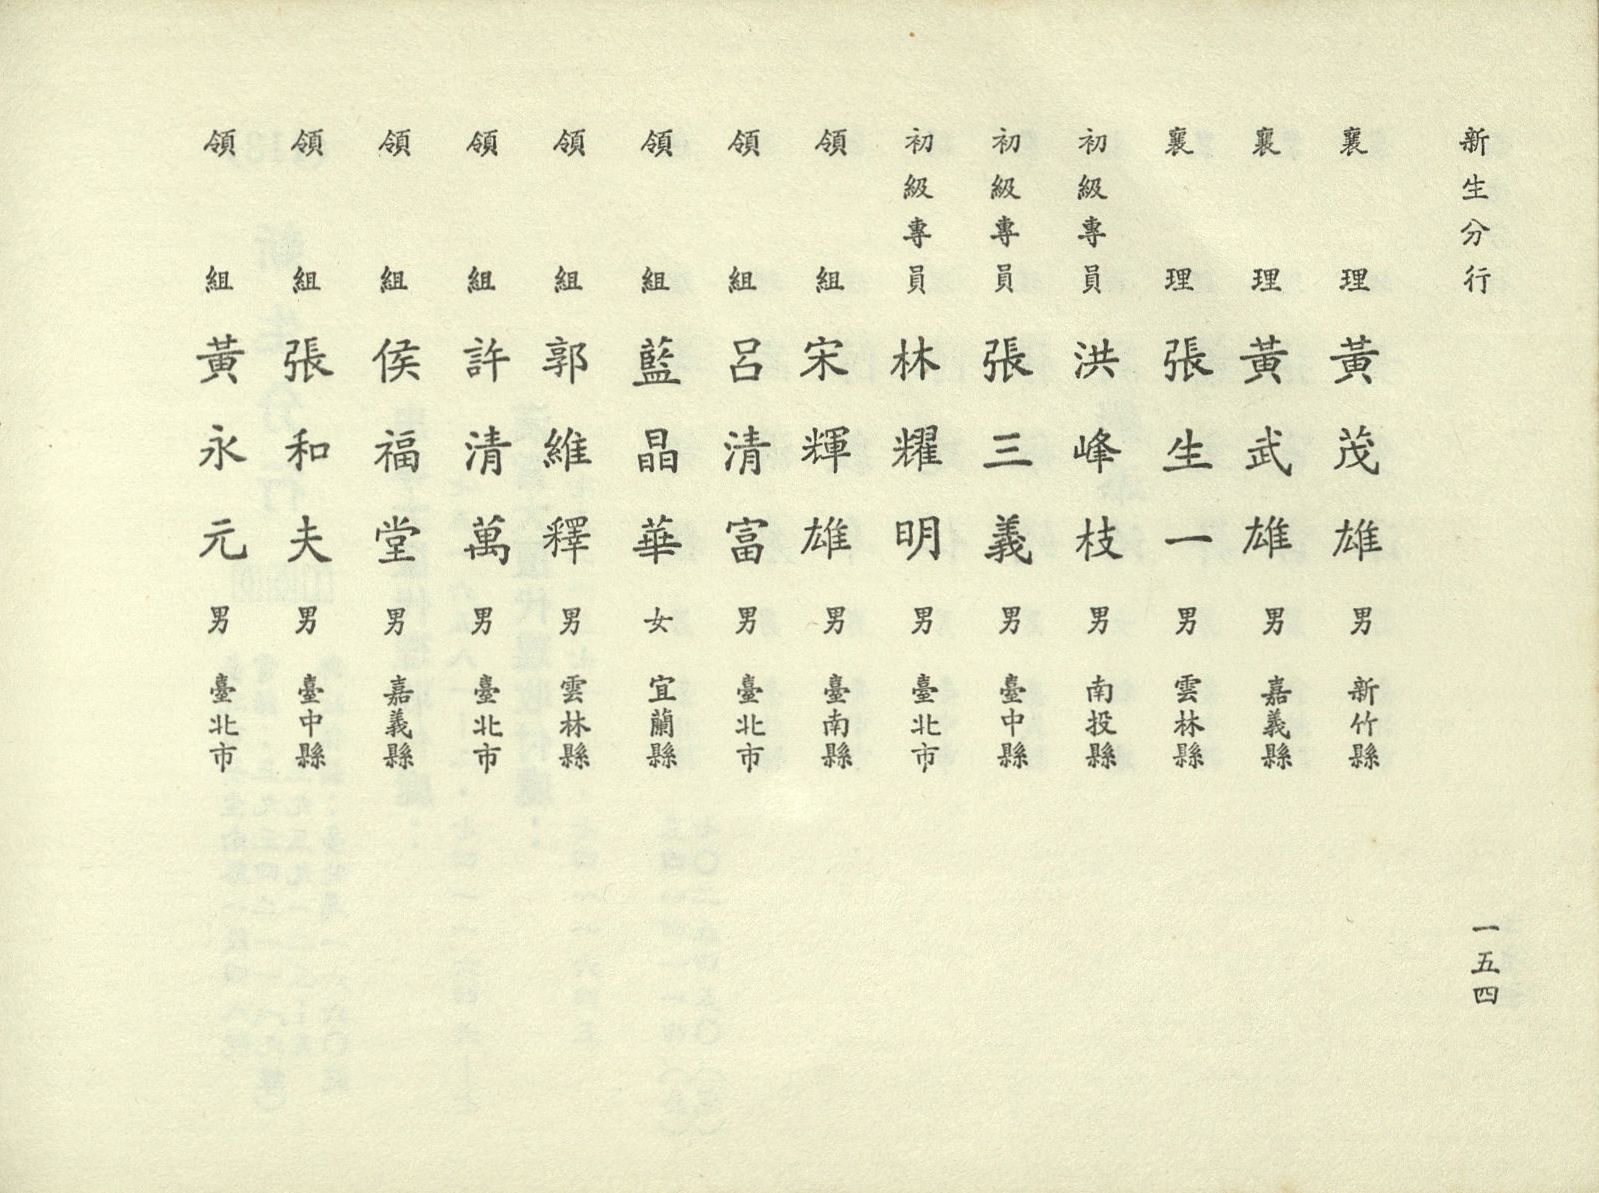 新生分行
襄理 黃茂雄 男 新竹縣
襄理 黃武雄 男 嘉義縣
襄理 張生一 男 雲林縣
初級專員 洪峰枝 男 南投縣
初級專員 張三義 男 臺中縣
初級專員 林耀明 男 臺北市
領組 宋輝雄 男 臺南縣
領組 呂清富 男 臺北市
領組 藍晶華 女 宜蘭縣
領組 郭維釋 男 雲林縣
領組 許清萬 男 臺北市
領組 侯福堂 男 嘉義縣
領組 張和夫 男 臺中縣
領組 黃永元 男 臺北市
一五四